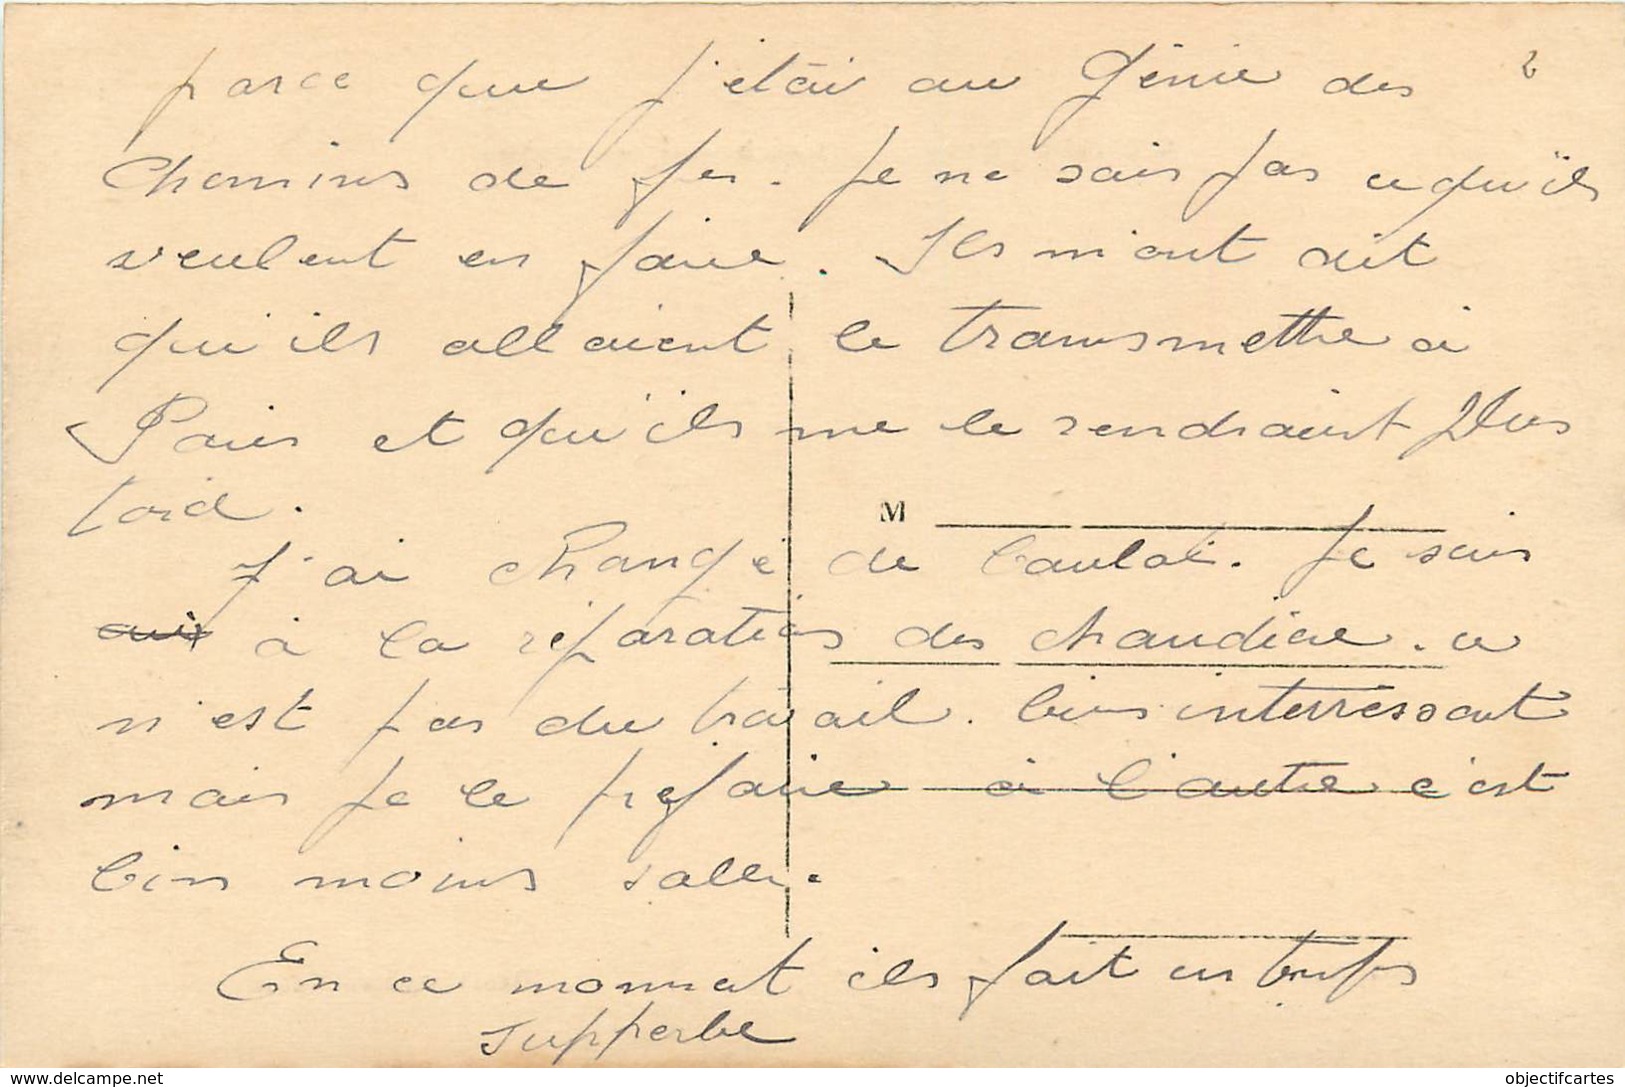 2
parce que j'étai au Génie des
chemins de fer. Je ne sais pas ce qu'ils
veulent en faire. Ils m'ont dit
qu'ils allaient le transmettre à
Paris et qu'ils me le rendraient plus
tard.
M
J'ai changé de boulot. Je suis
à la réparation des chaudière. ce
n'est pas du travail bien interressant
mais je le préfaire à l'autre c'est
bien moins salle.
En ce moment ils fait un temps
supperbe
www.delcampe.net
objectifcartes